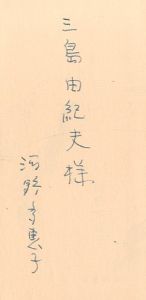 三島由紀夫様
河野多惠子